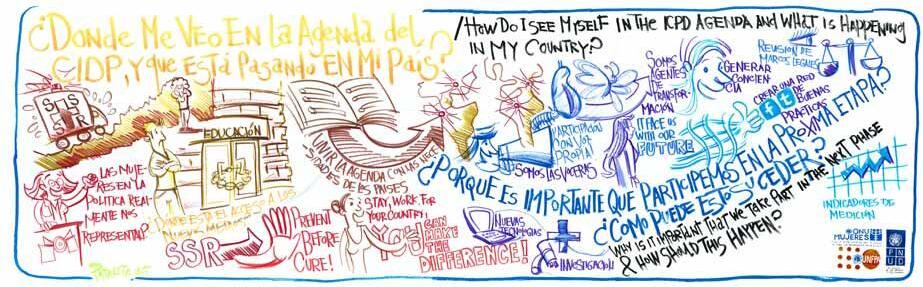 ¿DONDE ME VEO EN LA AGENDA DEL
CIDP, Y QUE ESTÁ PASANDO EN MI PAÍS?
/HOW DO I SEE MYSELF IN THE ICPD AGENDA AND WHAT IS HAPPENING
IN MY COUNTRY?
EDUCACIÓN
LAS MUJE
RES EN LA
POLITICA REAL-
MENTE NOS
REPRESENTAN?
DONDE ESTA EL ACCESO A LOS
UNIR LA AGENDA CON LAS NECE
SIDADES DE LOS PAISES
SSR
PREVENT
BEFORE
CURE!
STAY, WORK FOR
YOUR COUNTRY,
I CAN
MAKE
THE
DIFFERENCE!
PARTICIPACIÓN
CON VOZ
PROPIA
SOMOS
AGENTES
DE
TRANSFOR-
MACIÓN
IT FACE US
WITH OUR
FUTURE
SOMOS LAS VOCERAS
GENERAR
CONCIEN-
CIA
REVISIÓN DE
MARCOS LEGALES
CREAR UNA RED
DE
BUENAS
PRÁCTICAS
f t
¿PORQUÉ ES IMPORTANTE QUE PARTICIPEMOS EN LA PRÓXIMA ETAPA?
¿CÓMO PUEDE ESTO SUCEDER?
WHY IS IT IMPORTANT THAT WE TAKE PART IN THE NEXT PHASE
& HOW SHOULD THIS HAPPEN?
NUEVAS
TECNOLOGIAS
INVESTIGACION
INDICADORES DE
MEDICIÓN
ONU
MUJERES
UNFPA
PNUD